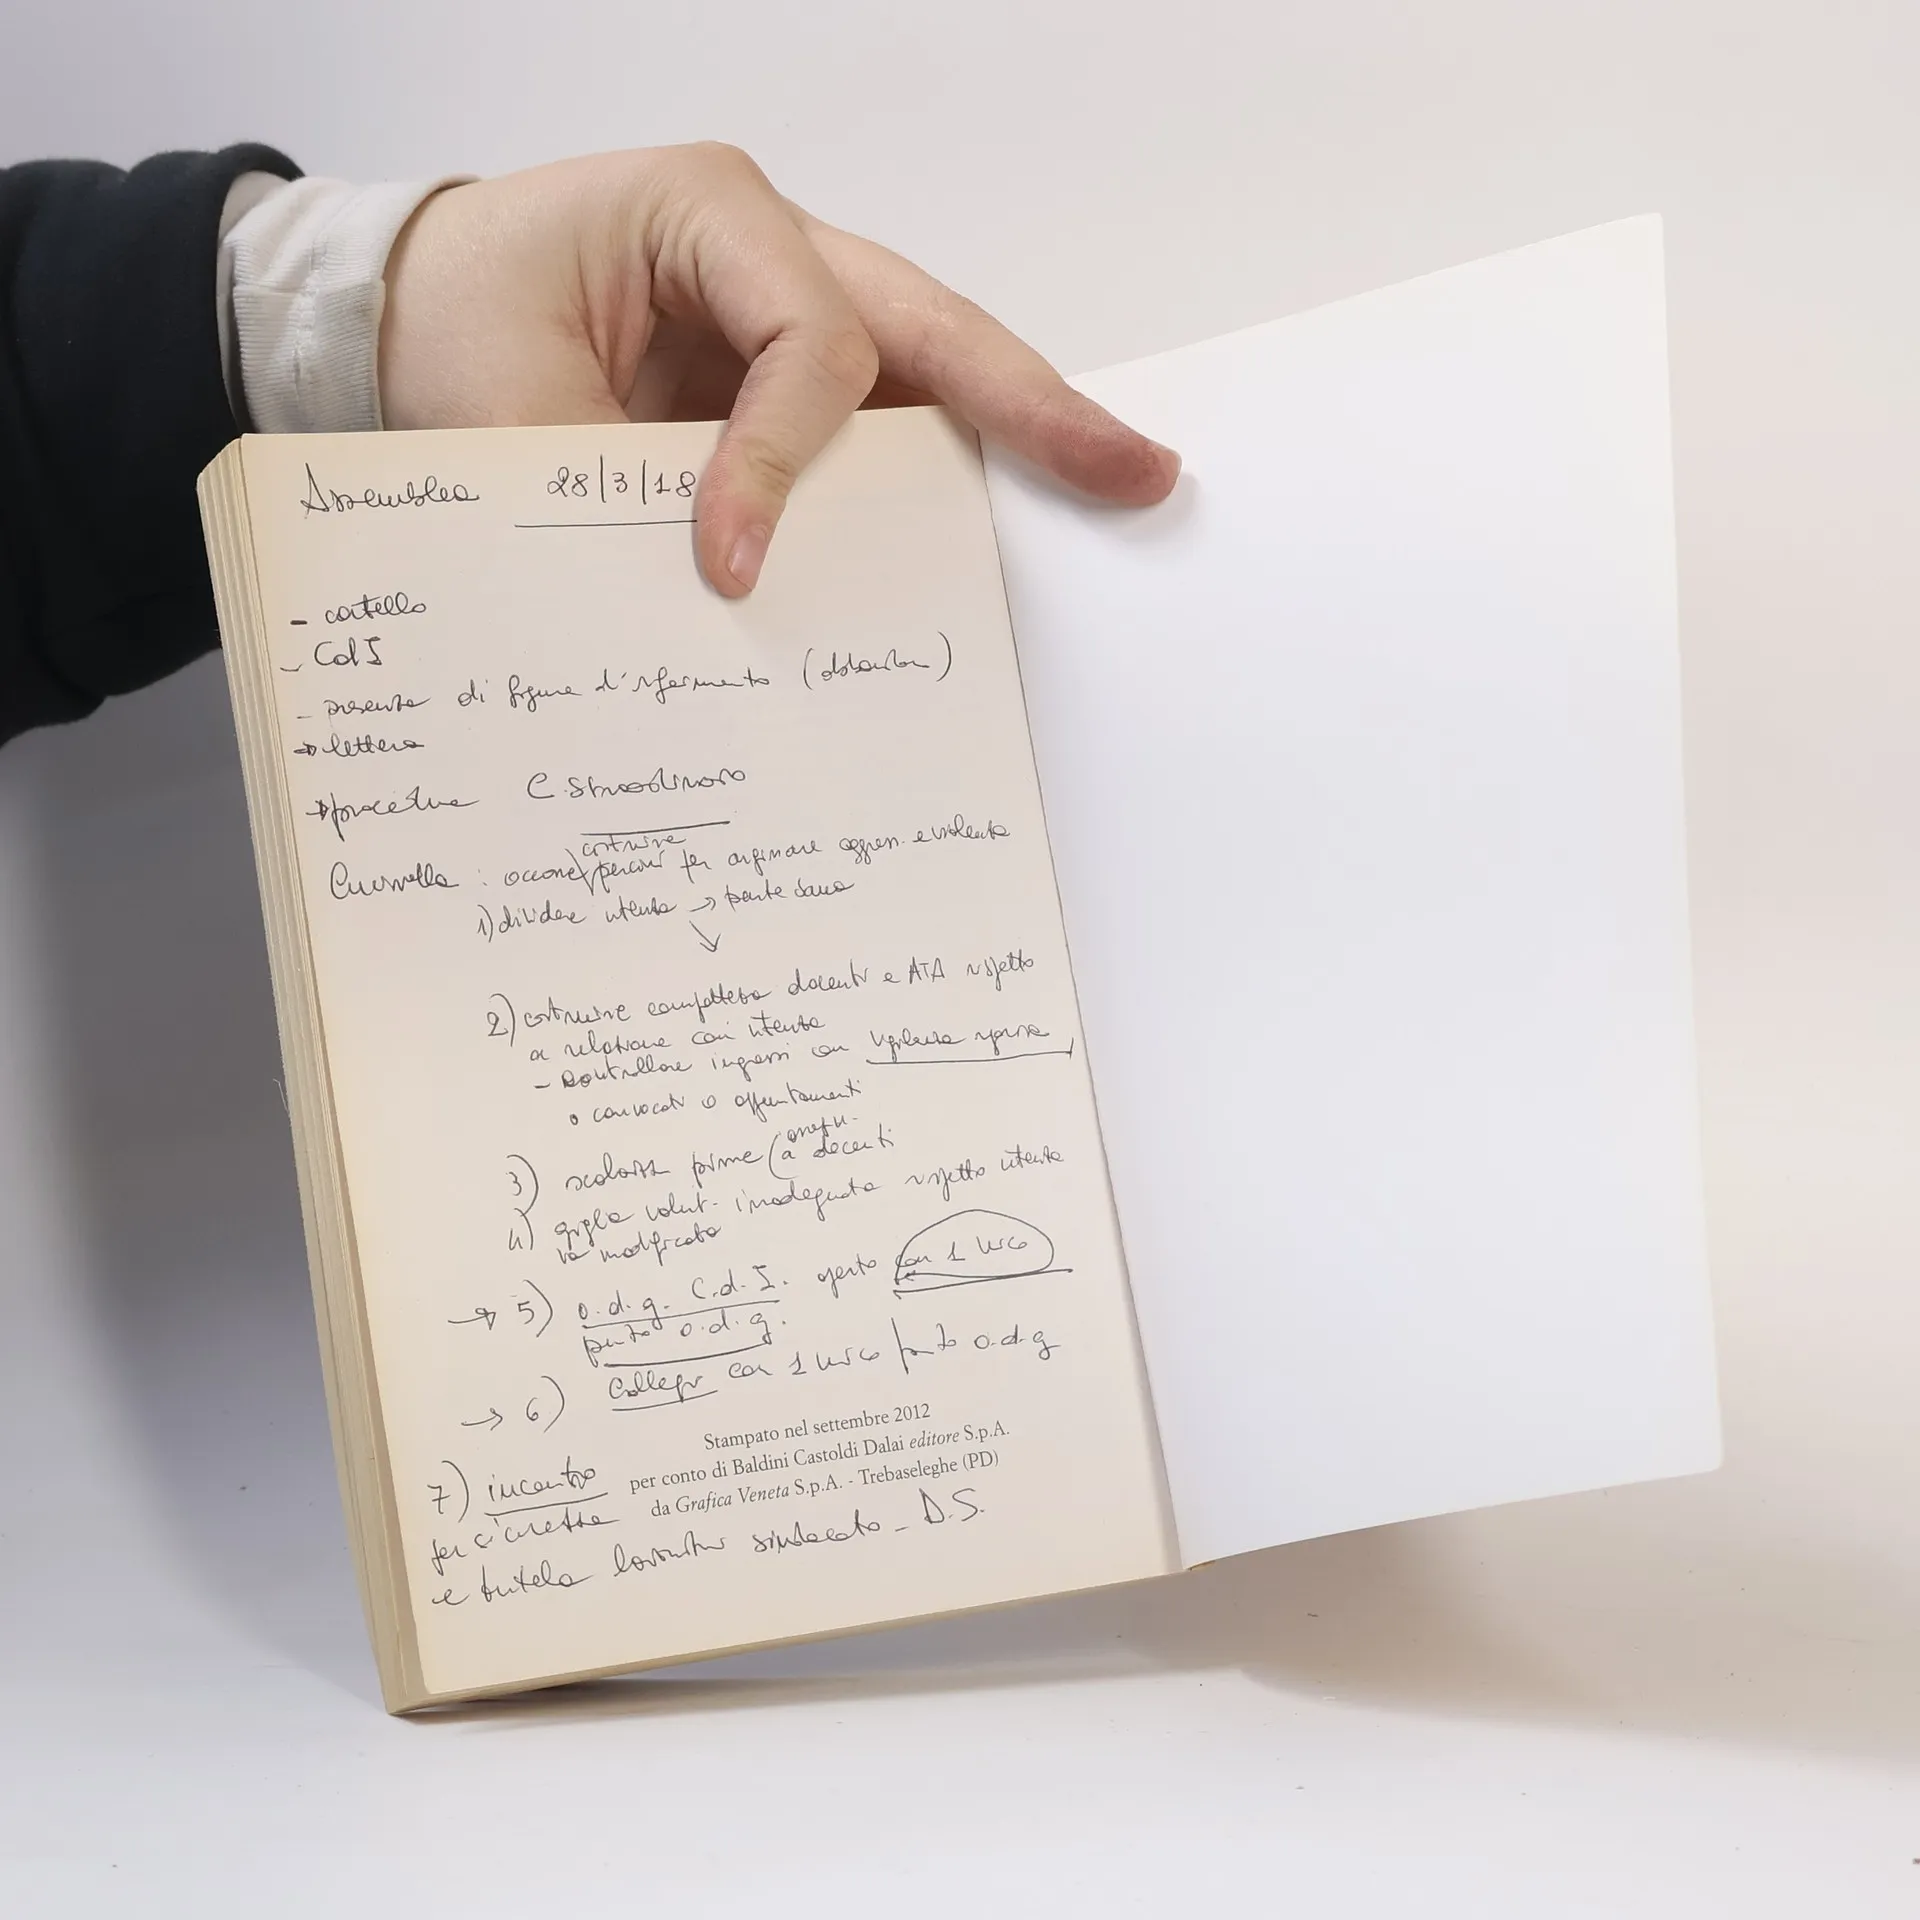 Assemblea 28/3/18
- cartello
- CdI
- presenza di figure d'riferimento ( )
→ lettera
→ procedura C. Straordinario
costruire
: occorre percorsi per arginare aggress. e violenza
1) dividere utenza → parte sana
2) costruire compattezza docenti e ATA rispetto
a relazione con utenza
- controllare ingressi con vigilanza
o convocati o appuntamenti
3) prime (a docenti
4) griglia valut. inadeguata rispetto utenza
va modificata
→ 5) o.d.g. C.d.I. aperto con 1 unico
punto o.d.g.
→ 6) Collegi con 1 unico punto o.d.g
Stampato nel settembre 2012
per conto di Baldini Castoldi Dalai editore S.p.A.
da Grafica Veneta S.p.A. - Trebaseleghe (PD)
7) incontro
per sicurezza
e tutela lavoratori sindacato - D.S.